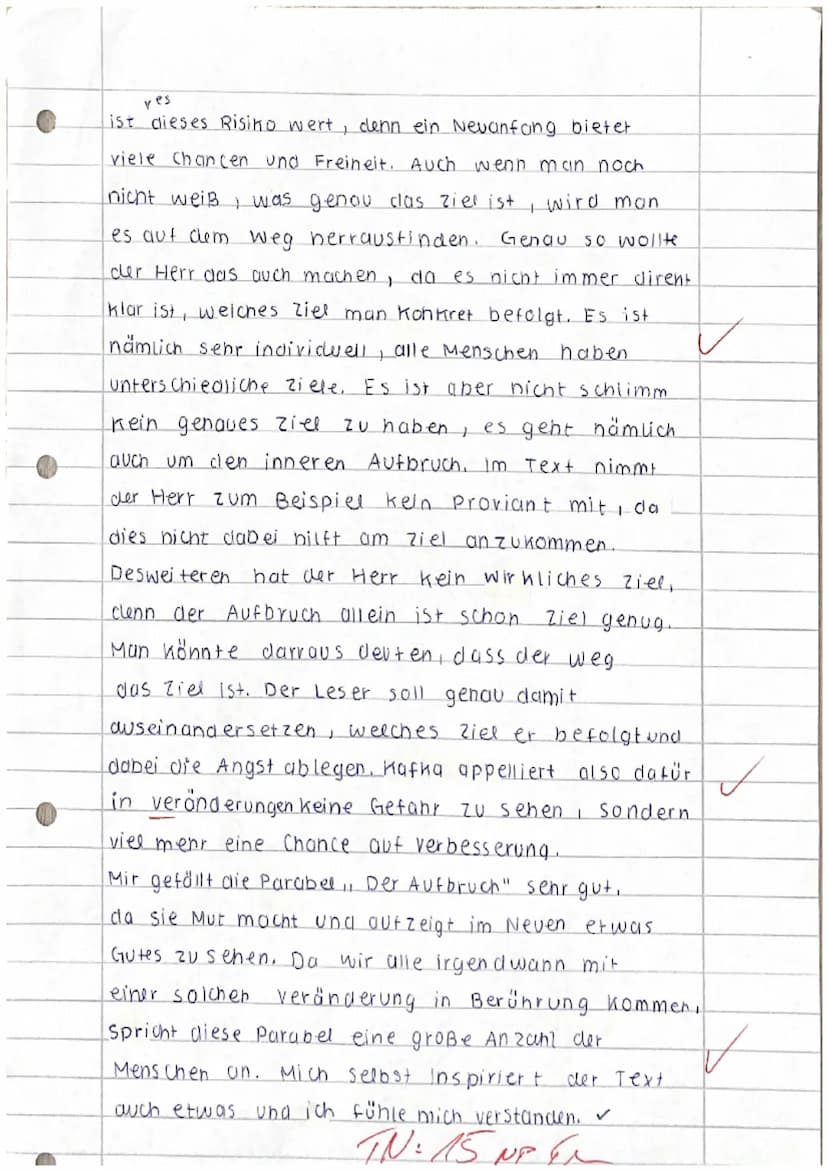 yes
ist dieses Risiko wert, denn ein Neuanfang bietet
viele Chancen und Freiheit. Auch wenn man noch
nicht weiß, was genau das Ziel ist, wird man
es auf dem Weg herrausfinden. Genau so wollte
der Herr das auch machen, da es nicht immer direkt
klar ist, welches Ziel man konkret befolgt. Es ist
nämlich sehr individuell, alle Menschen haben
unterschiedliche Ziele. Es ist aber nicht schlimm
kein genaues Ziel zu haben, es geht nämlich
auch um den inneren Aufbruch. Im Text nimmt
der Herr zum Beispiel kein Proviant mit, da
dies nicht dabei hilft am Ziel anzukommen.
Desweiteren hat der Herr kein wirkliches Ziel,
denn der Aufbruch allein ist schon Ziel genug.
Man könnte darraus deuten, dass der weg
das Ziel ist. Der Leser soll genau damit
auseinandersetzen, welches Ziel er befolgt und
dabei die Angst ablegen. Kafka appelliert also dafür
in veränderungen keine Gefahr zu sehen, sondern
viel mehr eine Chance auf verbesserung.
Mir gefällt die Parabel „Der Aufbruch" sehr gut,
da sie Mut macht und aufzeigt im Neuen etwas
Gutes zu sehen. Da wir alle irgendwann mit
einer solchen veränderung in Berührung kommen,
spricht diese Parabel eine große Anzahl der
Menschen an. Mich selbst inspiriert der Text
auch etwas und ich fühle mich verstanden. ✓
TN: 15 NP